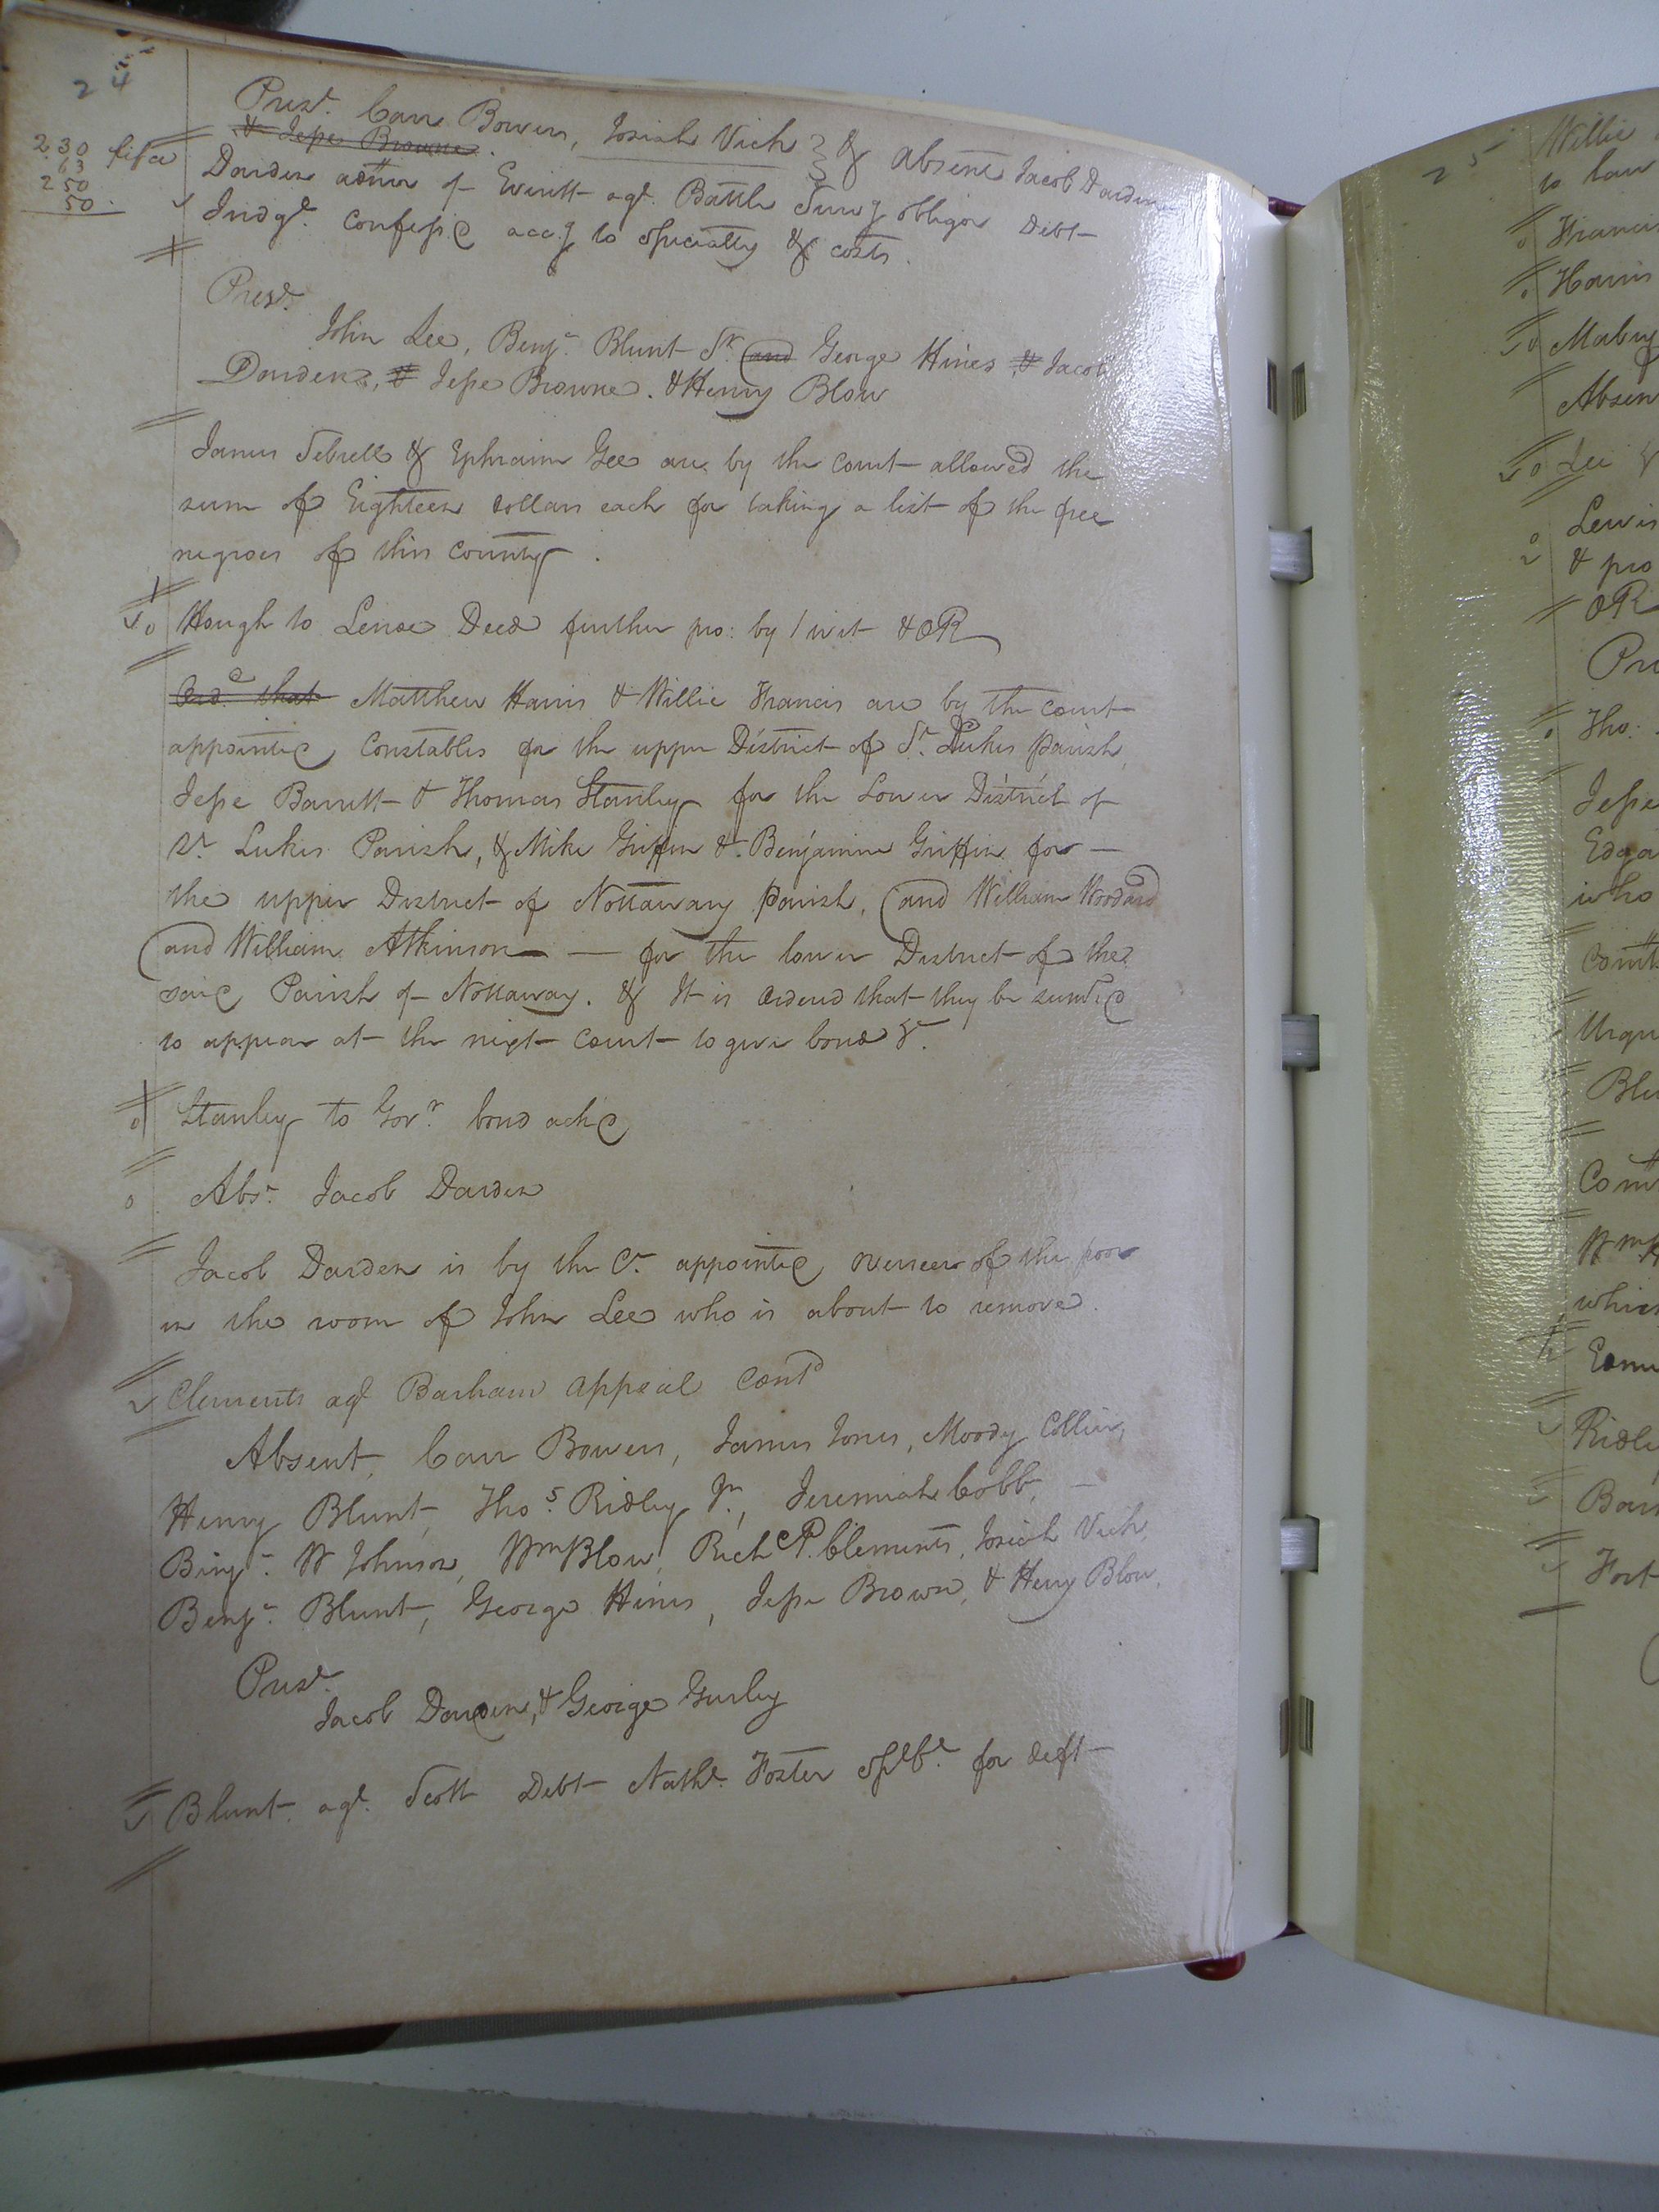 24
Presᵗ. Carr Bowers, Josiah Vick } & absent Jacob Darden
& Jesse Browne.
230 fifa
63
250
50.
Darden admor of Everitt agᵗ. Battle Survg obligor Debt
Judgᵗ. confessed accg to specialty & costs.
Presᵗ.
John Lee, Benjᵃ. Blunt Sʳ. and George Hines & Jacob
Darden, & Jesse Browne. & Henry Blow
James Sebrell & Ephraim Gee are by the court allowed the
sum of Eighteen dollars each for taking a list of the free
negroes of this county.
Hough to Deed further pro: by 1 wit & OR
Ordᵈ. that Matthew Harris & Willie Francis are by the court
appointed Constables for the upper District of Sᵗ. Lukes parish,
Jesse Barrett & Thomas Stanley for the Lower District of
Sᵗ. Lukes Parish, & Mike Griffin & Benjamine Griffin for —
the upper District of Nottaway parish, (and William Woodard
(and William Atkinson — for the lower District of the
said Parish of Nottaway. & It is Ordered that they be sumd
to appear at the next court to give bond &ᶜ.
Stanley to Govʳ. bond ackd
Absᵗ. Jacob Darden
Jacob Darden is by the Cᵗ. appointed overseer of the poor
in the room of John Lee who is about to remove.
Clements agᵗ Barham appeal contᵈ
Absent, Carr Bowers, James Jones, Moody Collier,
Henry Blunt, Thoˢ. Ridley Jʳ., Jeremiah Cobb, —
Benjᵃ. W Johnson, Wm Blow, Richᵈ P. Clements, Josiah Vick,
Benjᵃ. Blunt, George Hines, Jesse Brown, & Henry Blow,
Presᵗ.
Jacob Darden, & George Gurley
Blunt agᵗ. Scott Debt Nathˡ. Foster Splbˡ. for deft
25
Willie
to
Francis
Harris
Mabry
Absen
Lee &
Lewis
& pro
OR
Pre
Tho:
Jesse
Edga
who
Comth
Urqu
Blu
Comth
Wm
which
Ridle
Bar
Fort